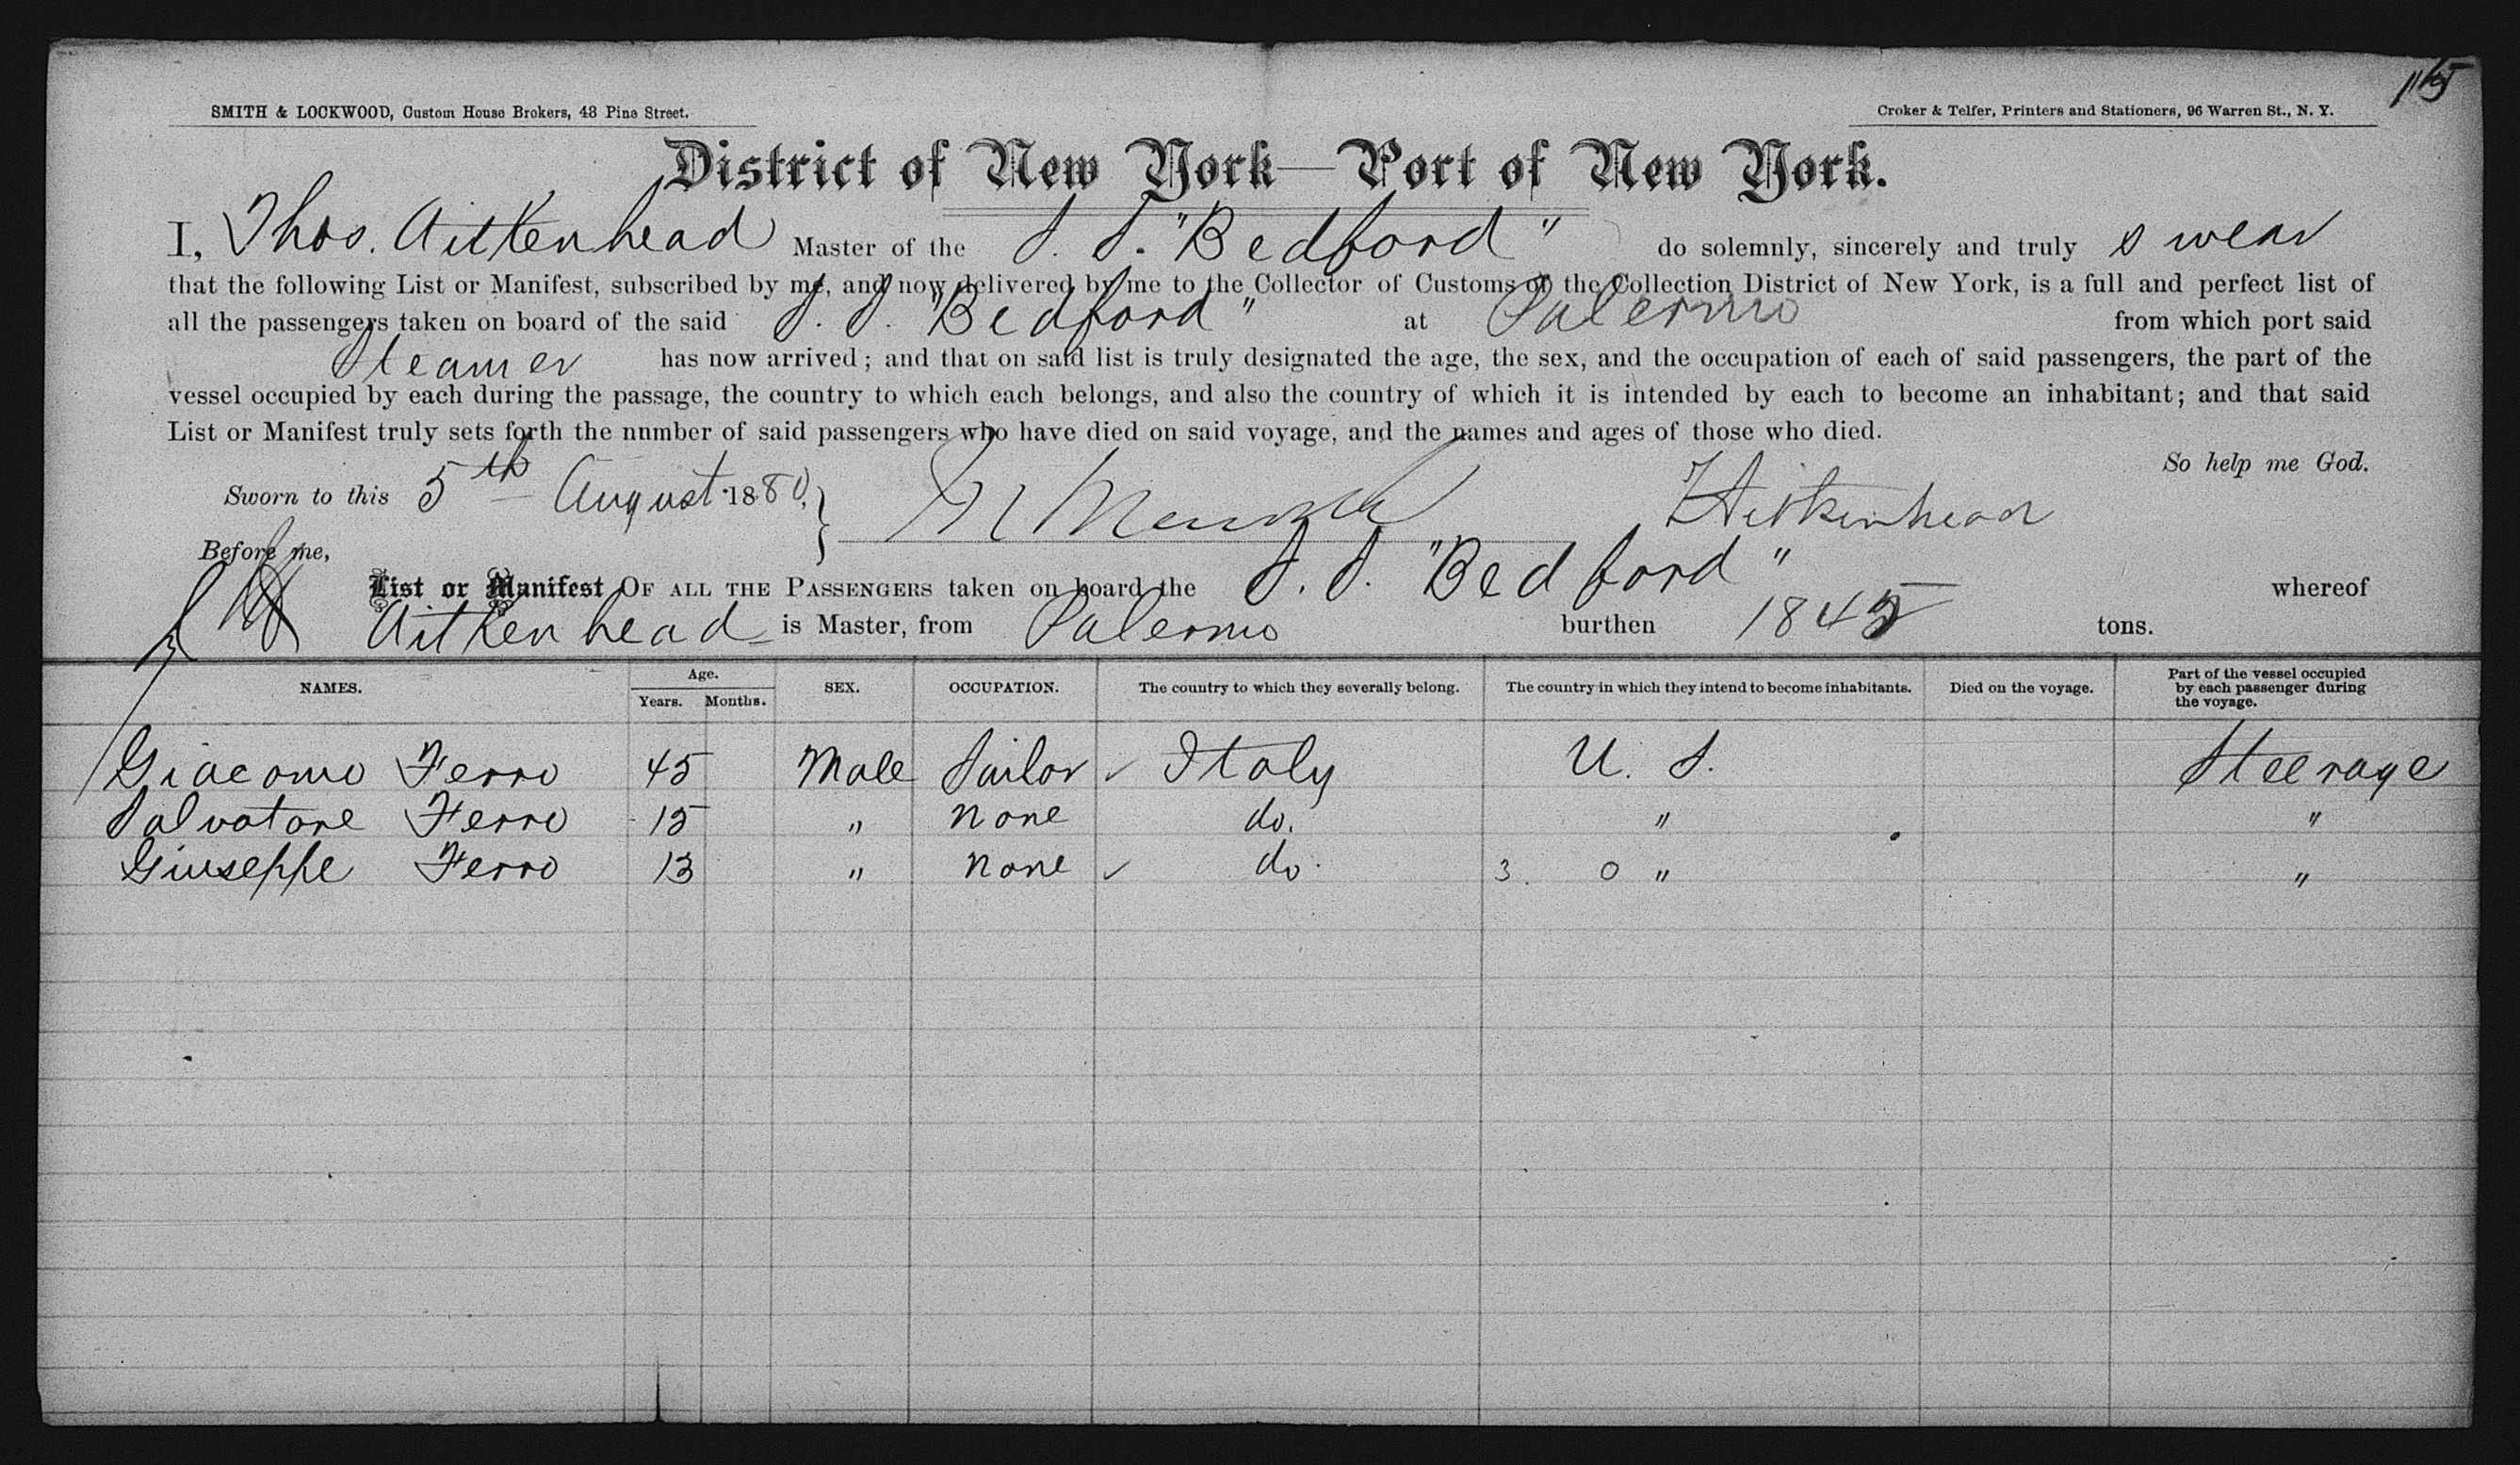 115
SMITH & LOCKWOOD, Custom House Brokers, 48 Pine Street.
Croker & Telfer, Printers and Stationers, 96 Warren St., N. Y.
District of New York—Port of New York.
I, Thos. Aitkenhead Master of the S. S. "Bedford" do solemnly, sincerely and truly swear
that the following List or Manifest, subscribed by me, and now delivered by me to the Collector of Customs of the Collection District of New York, is a full and perfect list of
all the passengers taken on board of the said S. S. "Bedford" at Palermo from which port said
Steamer has now arrived; and that on said list is truly designated the age, the sex, and the occupation of each of said passengers, the part of the
vessel occupied by each during the passage, the country to which each belongs, and also the country of which it is intended by each to become an inhabitant; and that said
List or Manifest truly sets forth the nnmber of said passengers who have died on said voyage, and the names and ages of those who died.
So help me God.
Sworn to this 5th August 1880, Aitkenhead
Before me,
List or Manifest OF ALL THE PASSENGERS taken on board the S. S. "Bedford" whereof
Aitkenhead is Master, from Palermo burthen 1845 tons.
NAMES. Age. Years. Months. SEX. OCCUPATION. The country to which they severally belong. The country in which they intend to become inhabitants. Died on the voyage. Part of the vessel occupied by each passenger during the voyage.
Giacomo Ferro 45 Male Sailor ✓ Italy U. S. Steerage
Salvatore Ferro 15 " None do. " "
Giuseppe Ferro 13 " None ✓ do. 3. 0 " "